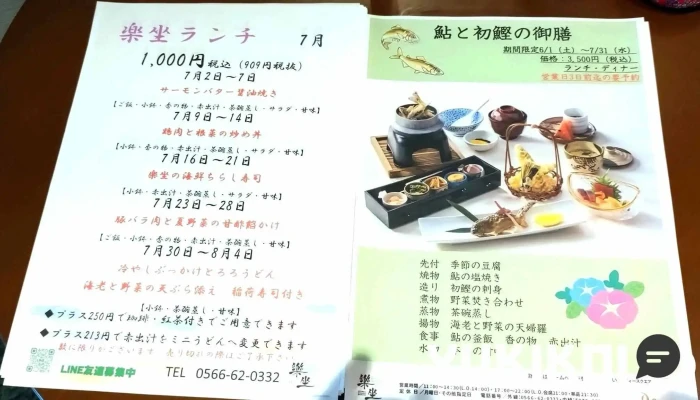 楽坐ランチ 7月
1,000円税込 (909円税抜)
7月2日～7日
サーモンバター醤油焼き
【ご飯・小鉢・香の物・赤出汁・茶碗蒸し・サラダ・甘味】
7月9日～14日
鶏肉と根菜の炒め丼
【小鉢・香の物・赤出汁・茶碗蒸し・サラダ・甘味】
7月16日～21日
楽坐の海鮮ちらし寿司
【小鉢・赤出汁・茶碗蒸し・サラダ・甘味】
7月23日～28日
豚バラ肉と夏野菜の甘酢餡かけ
【ご飯・小鉢・香の物・赤出汁・茶碗蒸し・甘味】
7月30日～8月4日
冷やしぶっかけとろろうどん
海老と野菜の天ぷら添え 稲荷寿司付き
【小鉢・茶碗蒸し・甘味】
◆プラス250円で珈琲・紅茶付きでご用意できます
◆プラス213円で赤出汁をミニうどんへ変更できます
数に限りがございます 売り切れの際はご了承下さい
LINE友達募集中
TEL 0566-62-0332
楽坐
鮎と初鰹の御膳
期間限定6/1（土）～7/31（水）
価格：3,500円（税込）
ランチ・ディナー
営業日3日前迄の要予約
先付 季節の豆腐
焼物 鮎の塩焼き
造り 初鰹の刺身
煮物 野菜焚き合わせ
蒸物 茶碗蒸し
揚物 海老と野菜の天婦羅
食事 鮎の釜飯 香の物 赤出汁
水
楽坐